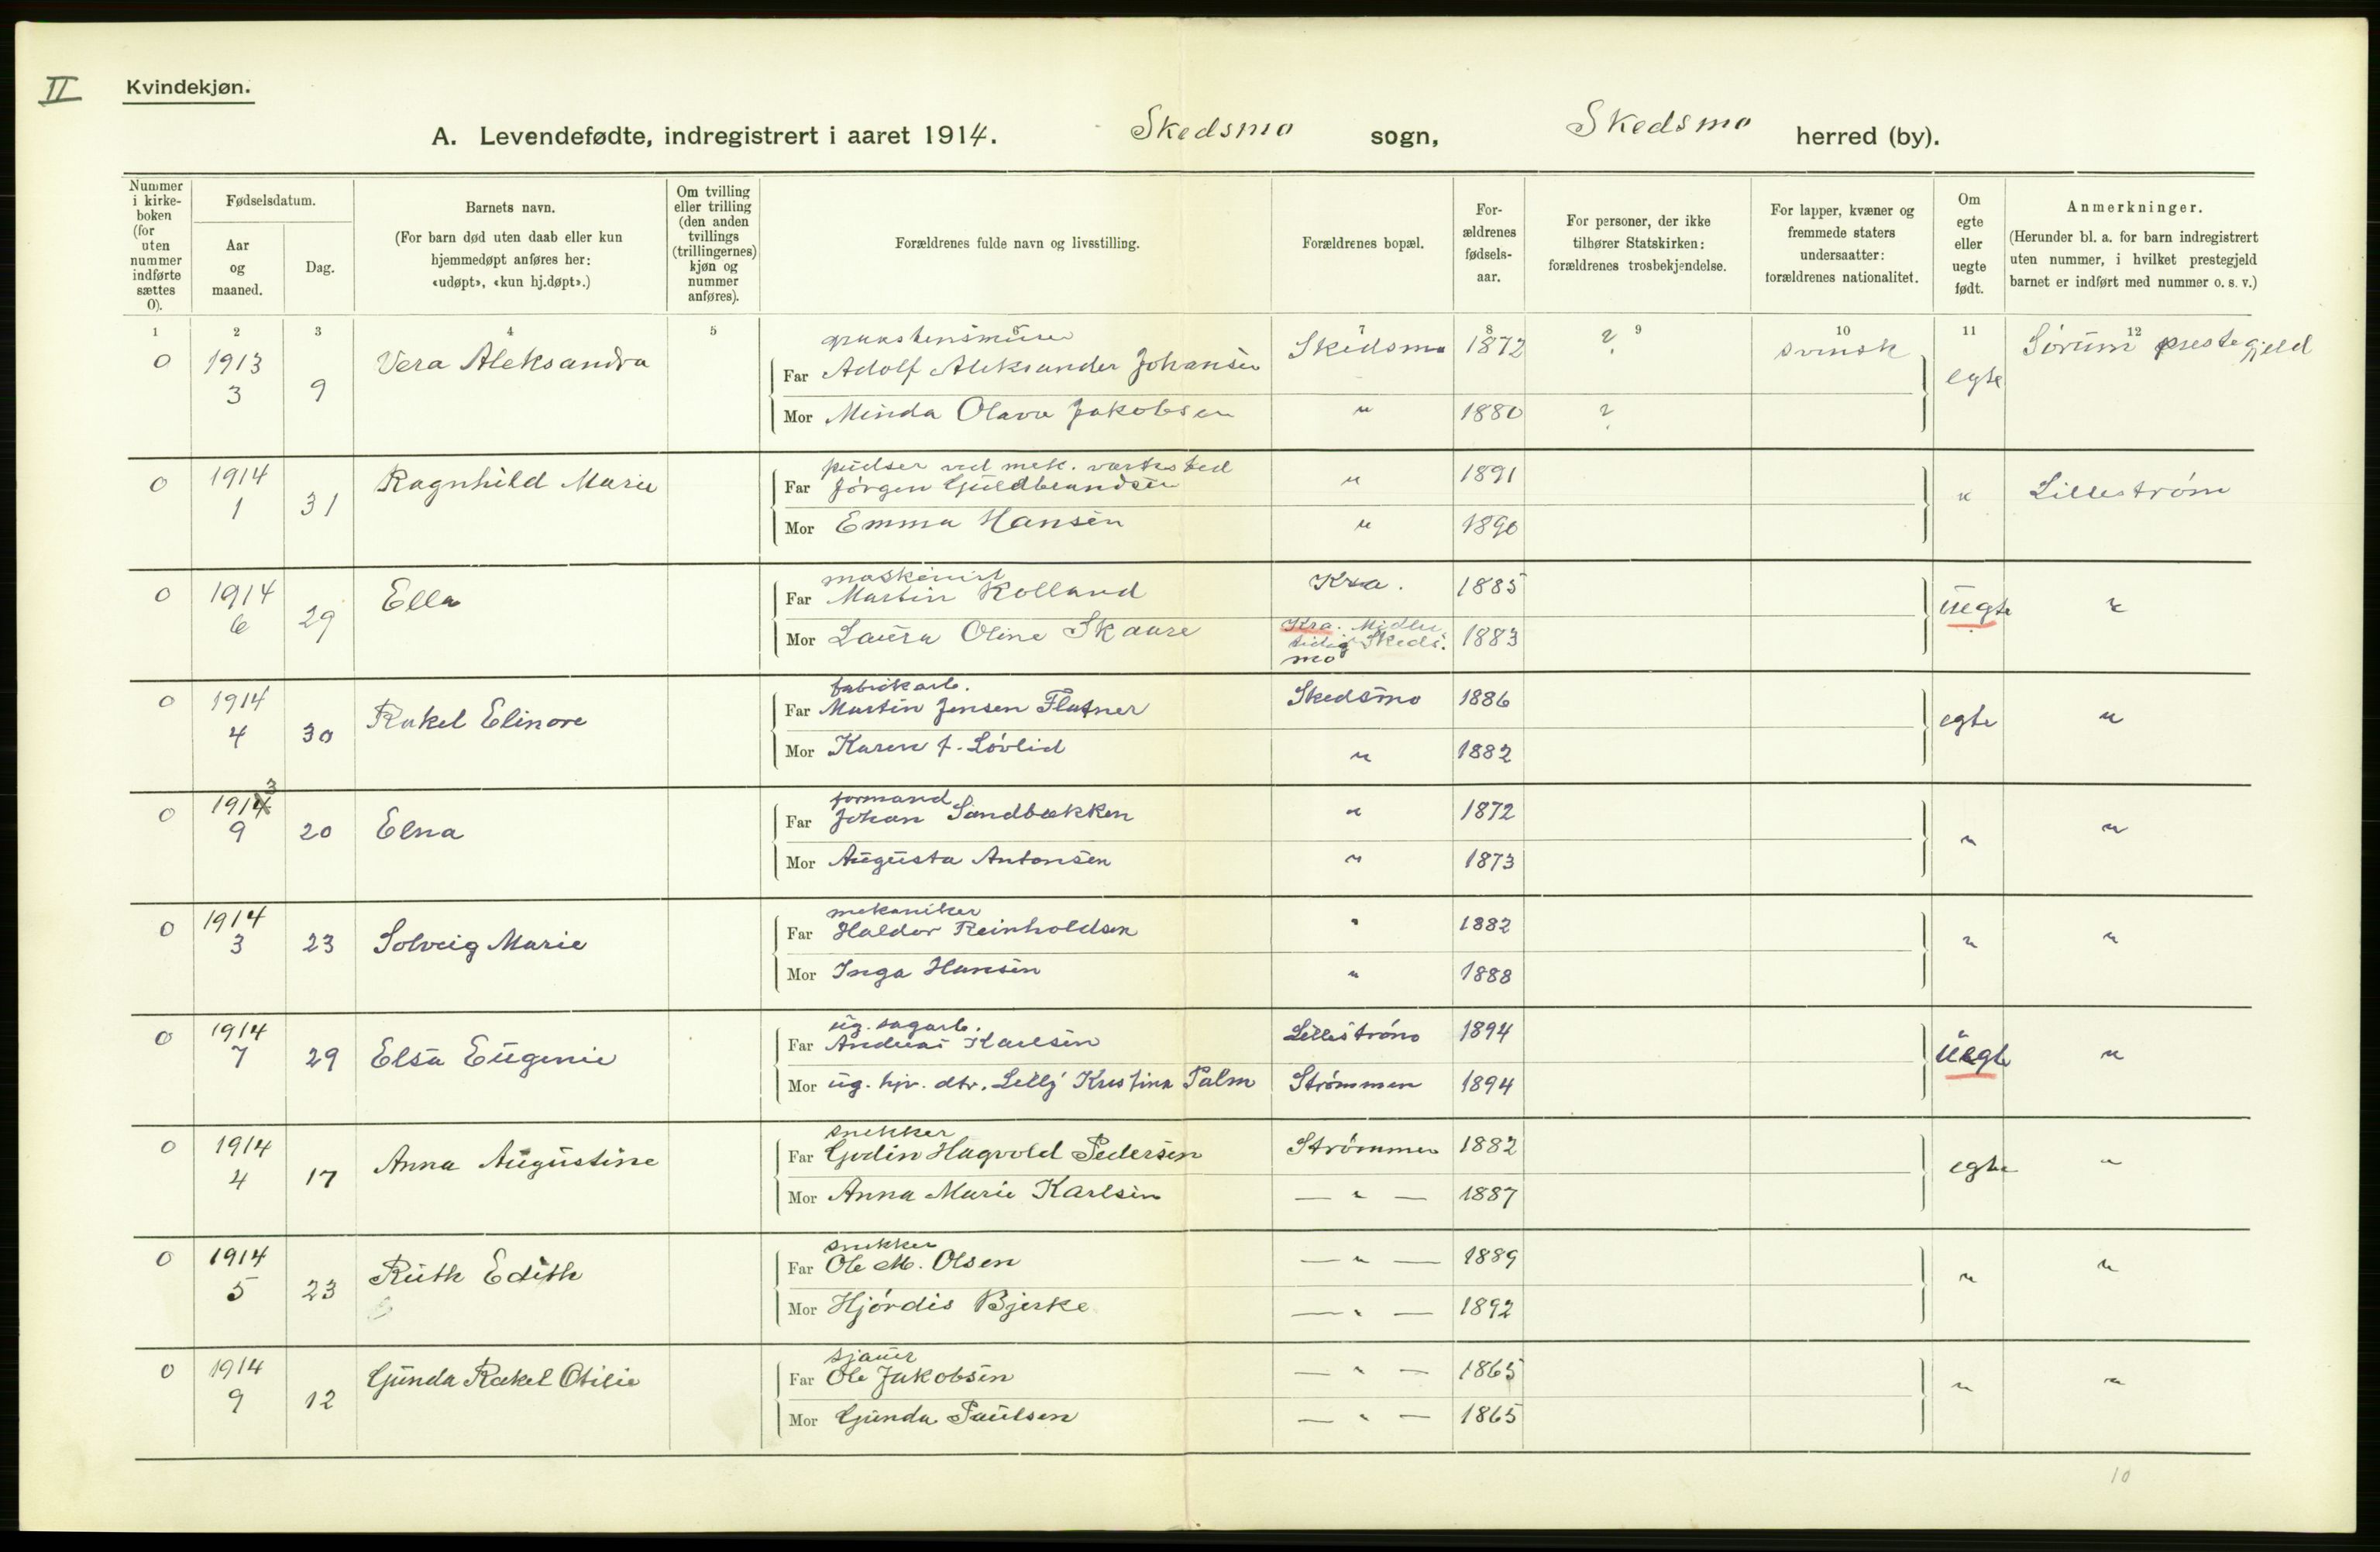 II
Kvindekjøn.
A. Levendefødte, indregistrert i aaret 1914. Skedsmo sogn, Skedsmo herred (by).
Nummer i kirke-boken (for uten nummer indførte sættes 0).
Fødselsdatum.
Aar og maaned.
Dag.
Barnets navn.
(For barn død uten daab eller kun hjemmedøpt anføres her: «udøpt», «kun hj.døpt».)
Om tvilling eller trilling (den anden tvillings (trillingernes) kjøn og nummer anføres).
Forældrenes fulde navn og livsstilling.
Forældrenes bopæl.
For-ældrenes fødsels-aar.
For personer, der ikke tilhører Statskirken: forældrenes trosbekjendelse.
For lapper, kvæner og fremmede staters undersaatter: forældrenes nationalitet.
Om egte eller uegte født.
Anmerkninger.
(Herunder bl. a. for barn indregistrert uten nummer, i hvilket prestegjeld barnet er indført med nummer o. s. v.)
1 2 3 4 5 6 7 8 9 10 11 12
0 1913 3 9 Vera Aleksandra
Far Adolf Aleksander Johansen Skedsmo 1872 ? svensk egte Sørum prestegjeld
Mor Minda Olava Jakobsen " 1880 ?
0 1914 1 31 Ragnhild Marie
pudser ved mek. værksted
Far Jørgen Guldbrandsen " 1891 " Lillestrøm
Mor Emma Hansen " 1890
0 1914 6 29 Ella
maskinist
Far Martin Rolland Kra. 1885 uegte "
Mor Laura Oline Skaare Kra. Midler tidig Skeds. mo 1883
0 1914 4 30 Rakel Elinore
fabrikarb.
Far Martin Jensen Flatner Skedsmo 1886 egte "
Mor Karen J. Løvlid " 1882
0 1914 3 9 20 Elna
formand
Far Johan Sandbækken " 1872 " "
Mor Augusta Antonsen " 1873
0 1914 3 23 Solveig Marie
mekaniker
Far Haldor Reinholdsen " 1882 " "
Mor Inga Hansen " 1888
0 1914 7 29 Elsa Eugenie
ug. sagarb.
Far Andreas Karlsen Lillestrøm 1894 uegte "
Mor ug. hjv. dtr. Lilly Kristina Palm Strømmen 1894
0 1914 4 17 Anna Augustine
snekker
Far Godin Hagvold Pedersen Strømmen 1882 egte "
Mor Anna Marie Karlsen — " — 1887
0 1914 5 23 Ruth Edith
snekker
Far Ole M. Olsen — " — 1889 " "
Mor Hjørdis Bjerke — " — 1892
0 1914 9 12 Gunda Rakel Otilie
sjauer
Far Ole Jakobsen — " — 1865 " "
Mor Gunda Paulsen — " — 1865
10